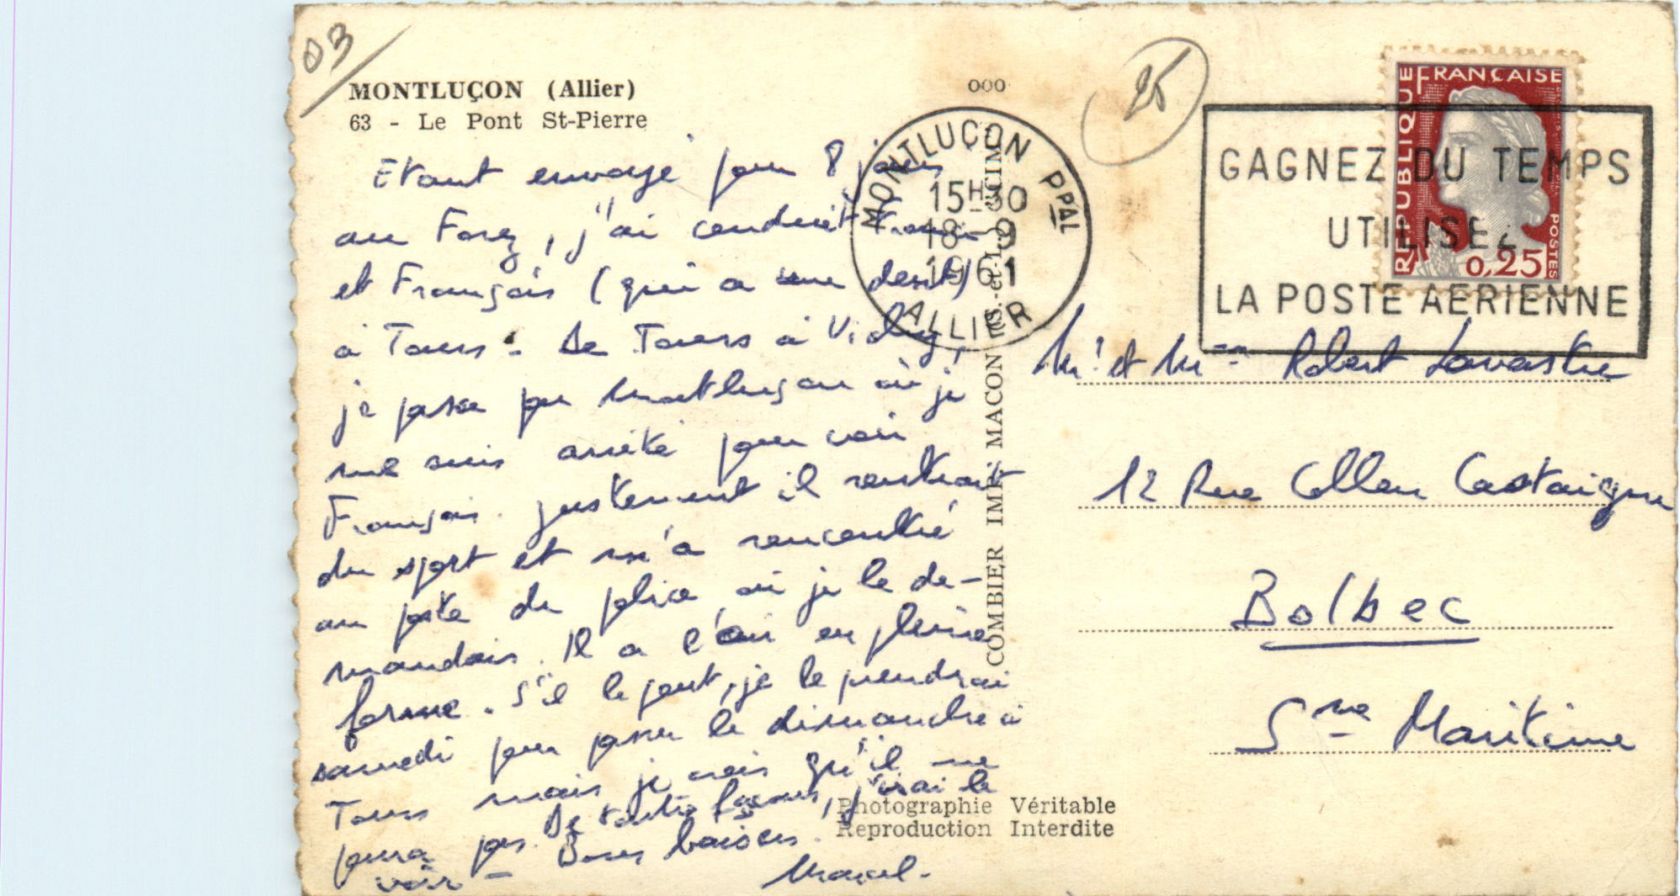 03
MONTLUÇON (Allier)
63 - Le Pont St-Pierre
Etant envoyé pour 8 jours
au Forez, j'ai conduit
et François (qui a une dent)
à Tours. De Tours à Vichy,
je passe par Montluçon où je
me suis arrêté pour voir
François. Justement il rentrait
du sport et m'a rencontré
au poste de police où je le de-
mandais. Il a l'air en pleine
forme. S'il le peut, je le prendrai
samedi pour passer le dimanche à
Tours mais je crois qu'il ne
pourra pas. De toutes façons, j'irai le
voir - Bons baisers.
Marcel.
ooo
25
MONTLUÇON PPAL
15H30
18-9
1961
ALLIER
GAGNEZ DU TEMPS
UTILISEZ
LA POSTE AERIENNE
RÉPUBLIQUE FRANÇAISE
POSTES
0,25
COMBIER IMP. MACON
Mr et Mme Robert Lavastre
12 Rue Collen Castaigne
Bolbec
Sne Maritime
Photographie Véritable
Reproduction Interdite